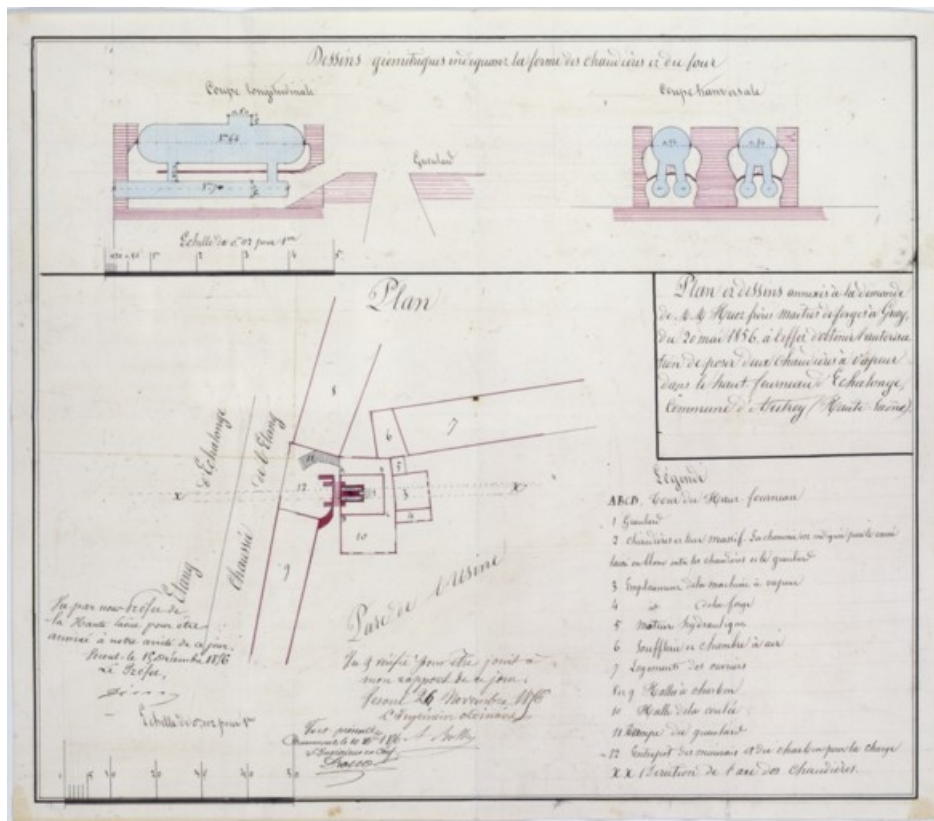 Dessins géométriques indiquant la forme des chaudières et du four
Coupe longitudinale
Coupe transversale
Gueulard
Echelle de 0m02 pour 1m
1 2 3 4 5
Plan
Plan et dessins annexés à la demande
de M.M. frères maîtres de forges à Gray,
du 20 mai 1856, à l'effet d'obtenir l'autorisa
tion de poser deux chaudières à vapeur
dans le haut fourneau d'Echalonge,
Commune d'Autrey (Haute Saône).
8
7
6
5
3
4
11
12
10
9
x
x
Etang d'Echalonge
Chaussée de l'Etang
Parc de l'Usine
Légende
ABCD. Tour du Haut fourneau
1 Gueulard
2 Chaudières et leur massif. La cheminée est indiquée par le carré
laissé en blanc entre les chaudières et le gueulard
3 Emplacement de la machine à vapeur
4 id de la forge
5 Moteur hydraulique
6 Soufflerie et chambre à air
7 Logements des ouvriers
8 et 9 Halles à charbon
10 Halle de la coulée
11 du gueulard
12 Entrepôt des minerais et du charbon pour la charge
XX Direction de l'axe des chaudières.
Vu par nous Préfet de
la Haute Saône pour être
annexé à notre arrêté de ce jour.
Vesoul le 15 Décembre 1856
Le Préfet,
Vu et vérifié pour être joint à
mon rapport de ce jour.
Vesoul 26 Novembre 1856
L'Ingénieur ordinaire
l'Ingénieur en Chef
Echelle de 0,002 pour 1m
10 20 30 40 50